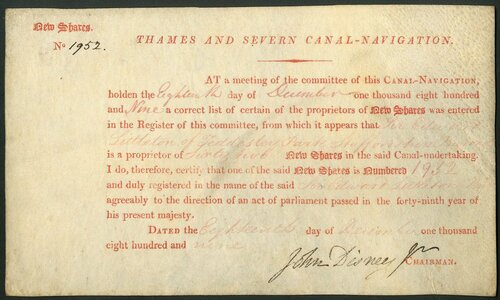 New Shares.
No 1952.
THAMES AND SEVERN CANAL-NAVIGATION.
AT a meeting of the committee of this CANAL-NAVIGATION,
holden the Eighteenth day of December one thousand eight hundred
and Nine a correct list of certain of the proprietors of New Shares was entered
in the Register of this committee, from which it appears that
Littleton of Park
is a proprietor of New Shares in the said Canal-undertaking.
I do, therefore, certify that one of the said New Shares is Numbered 1952
and duly registered in the name of the said
agreeably to the direction of an act of parliament passed in the forty-ninth year of
his present majesty.
DATED the Eighteenth day of December one thousand
eight hundred and nine
John Disney Jr
CHAIRMAN.